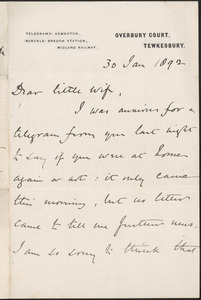 TELEGRAMS: KEMERTON,
PARCELS: BREDON STATION,
MIDLAND RAILWAY.
OVERBURY COURT,
TEWKESBURY.
30 Jan 1892
Dear little Wife,
I was anxious for a
telegram from you last night
to say if you were at home
again or not: it only came
this morning, but no letter
came to tell me further news.
I am so sorry to think that